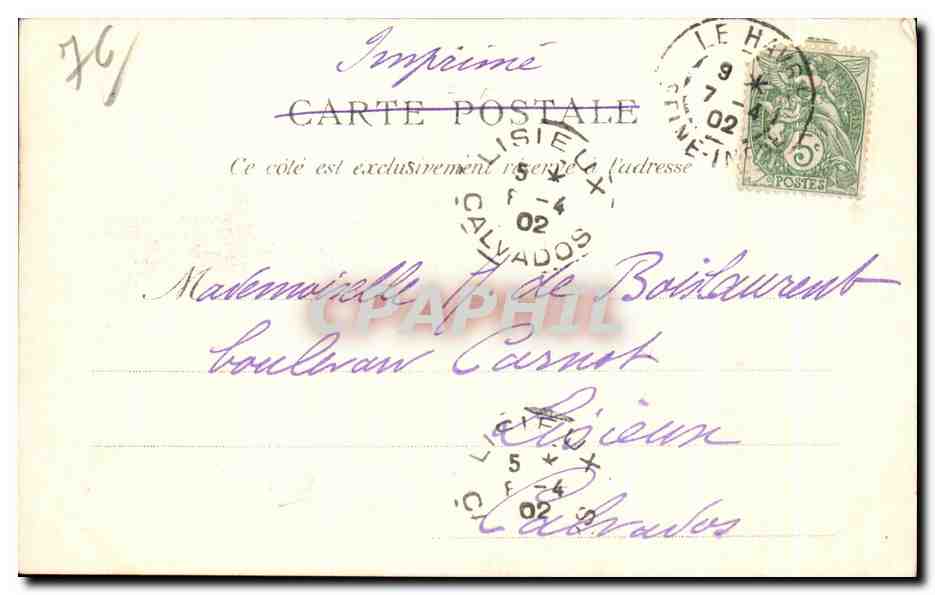 76
Imprimé
CARTE POSTALE
Ce côté est exclusivement réservé à l'adresse
LE HAVRE
9 *
7 -4
02
SEINE-INFRE
5c
POSTES
LISIEUX
5 *
8 -4
02
CALVADOS
Mademoiselle J. de Boislaurent
boulevar Carnot
Lisieux
Calvados
LISIEUX
5 *
8 -4
02
CPAPHIL